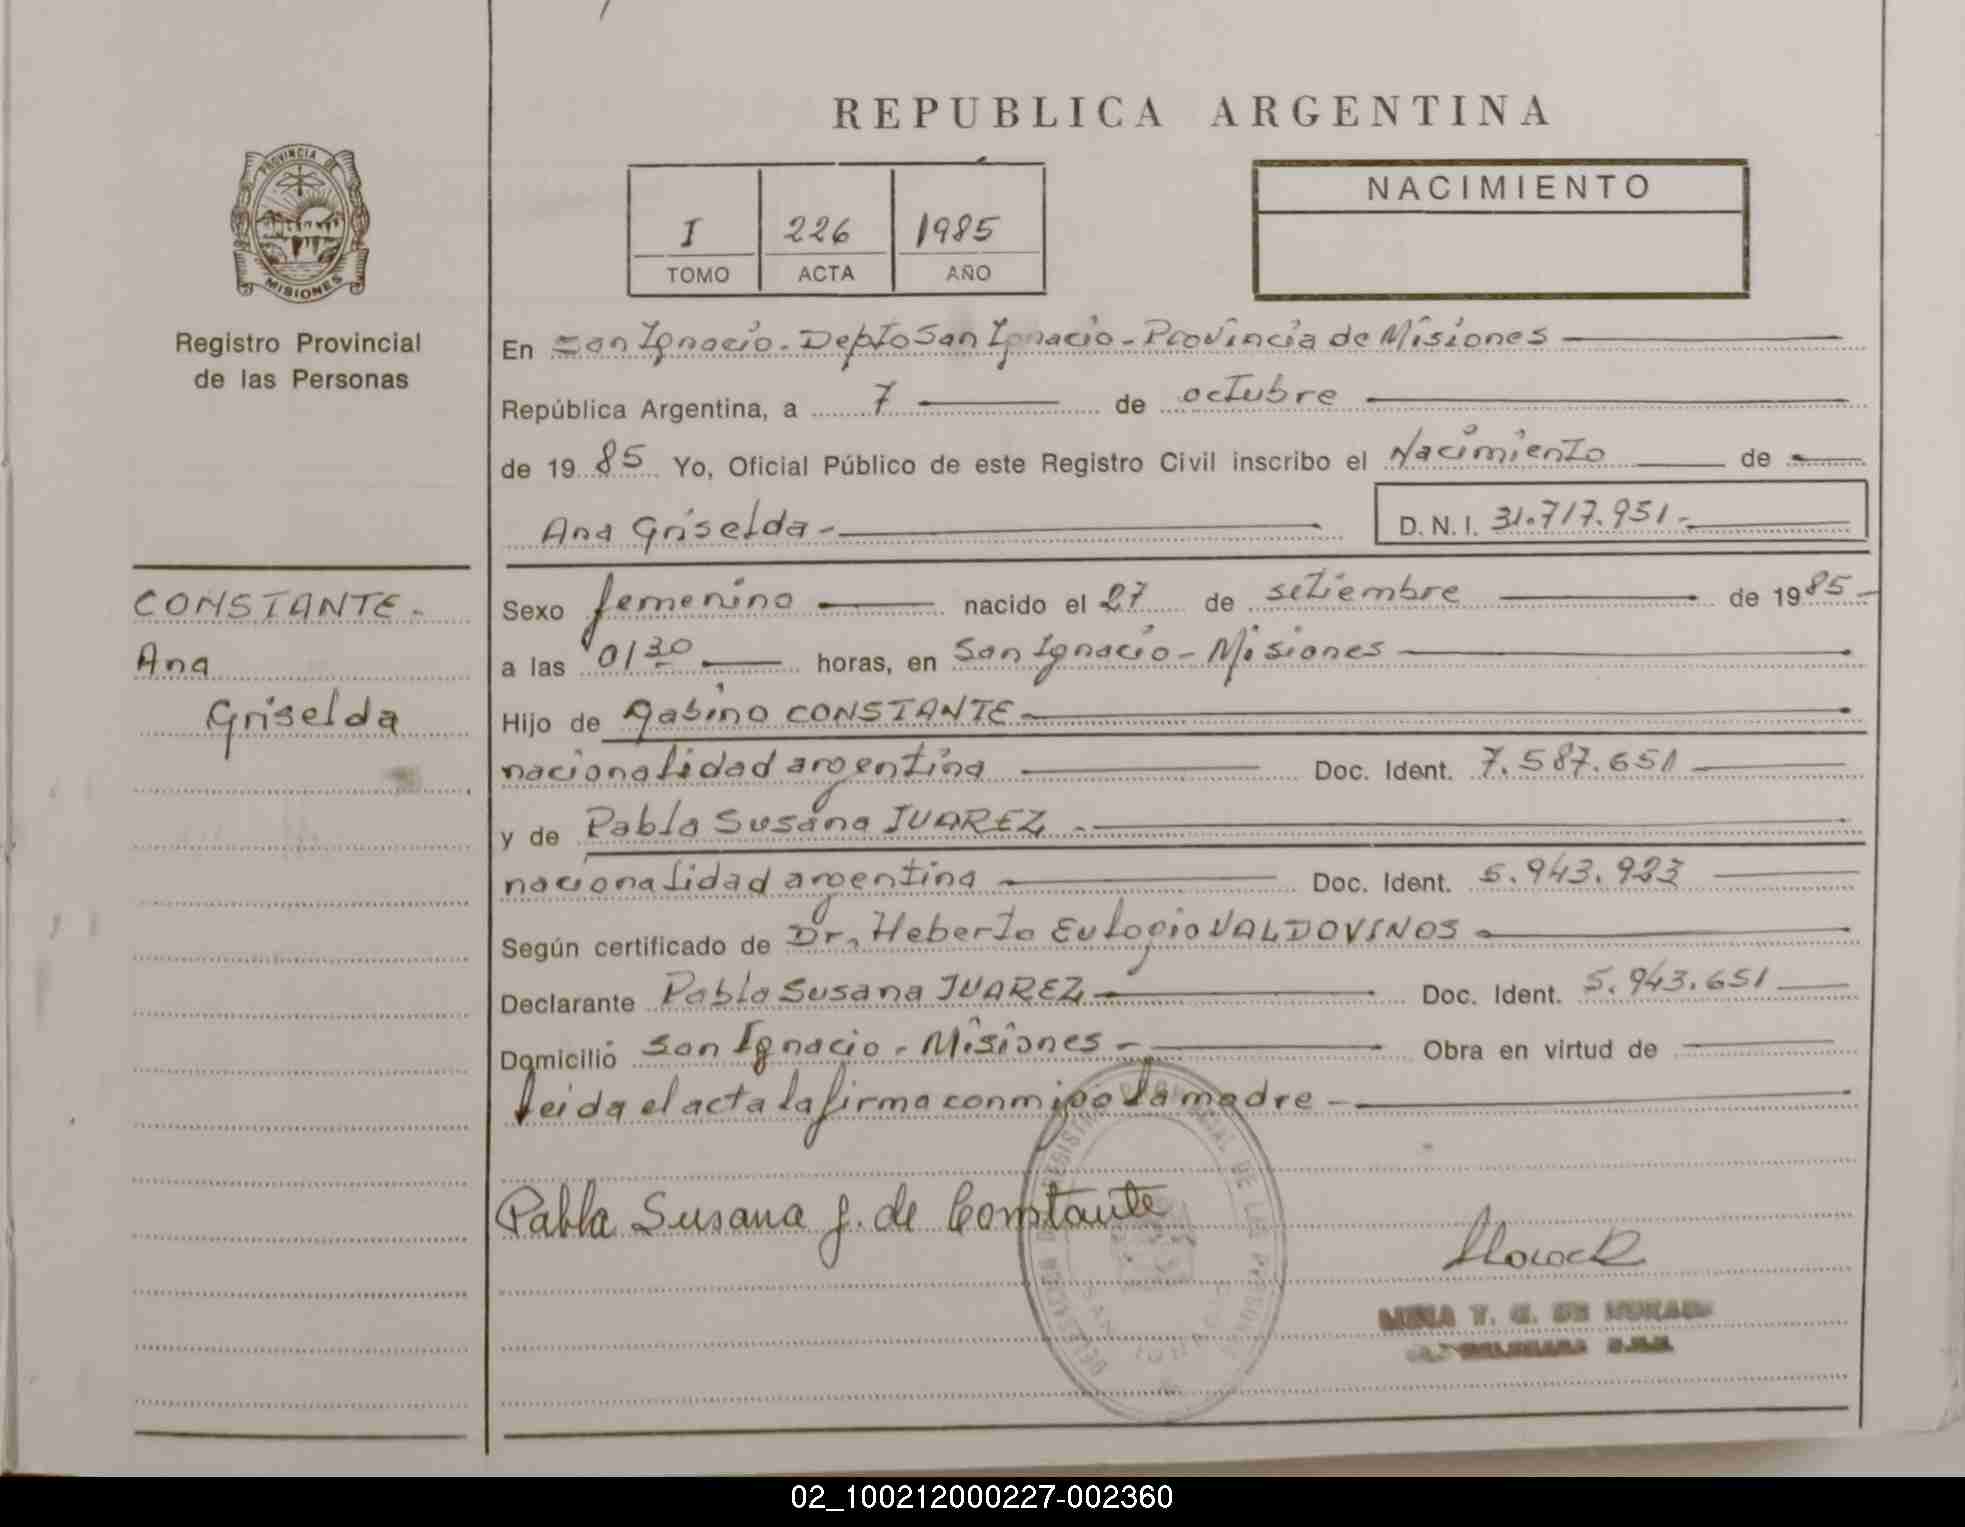 REPUBLICA ARGENTINA
PROVINCIA DE
MISIONES
Registro Provincial
de las Personas
I 226 1985
TOMO ACTA AÑO
NACIMIENTO
En San Ignacio - Depto San Ignacio - Provincia de Misiones
República Argentina, a 7 de octubre
de 1985 Yo, Oficial Público de este Registro Civil inscribo el Nacimiento de
Ana Griselda - D. N. I. 31.717.951 -
CONSTANTE -
Ana
Griselda
Sexo femenino nacido el 27 de setiembre de 1985 -
a las 0130 horas, en San Ignacio - Misiones
Hijo de Gabino CONSTANTE
nacionalidad argentina Doc. Ident. 7.587.651
y de Pabla Susana JUAREZ -
nacionalidad argentina Doc. Ident. 5.943.923
Según certificado de Dr. Heberto Eulogio VALDOVINOS
Declarante Pabla Susana JUAREZ Doc. Ident. 5.943.651
Domicilio San Ignacio - Misiones - Obra en virtud de
Leida el acta la firma conmigo la madre -
Pabla Susana J. de Constante
DELEGACION DEL REGISTRO PROVINCIAL DE LAS PERSONAS
SAN IGNACIO
02_100212000227-002360